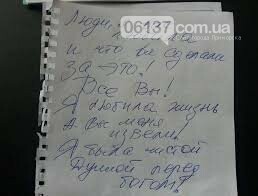 06137.com.ua
Люди,
и что вы сделали
за это!
Все Вы!
Я любила жизнь
А вы меня
извели!
Я была чистой
душой перед
богом!